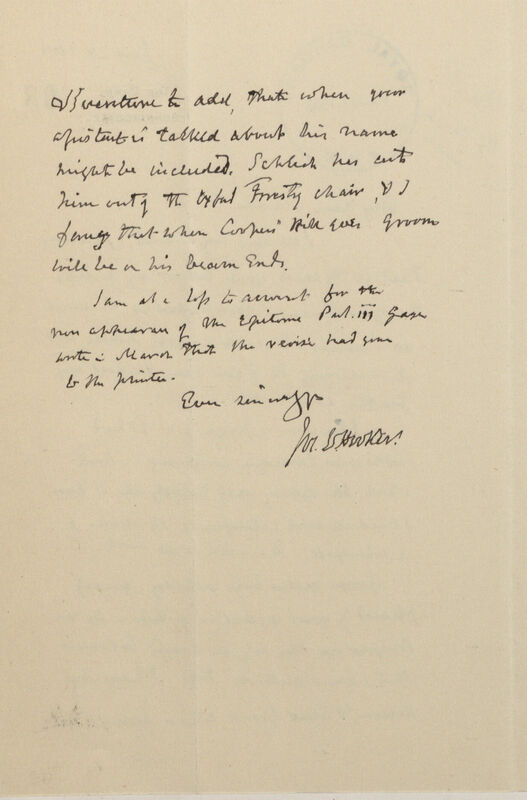 I venture to add, that when your
assistant is talked about his name
might be included. Schlich has cut
him out of the Oxford Forestry chair, & I
fancy that when Coopers Hill goes Groom
will be on his beam Ends.
I am at a loss to account for the
non appearance of the Epitome Part. III Gage
wrote in March that the revise had gone
to the printer.
Ever sincerely yrs
Jos. D. Hooker.